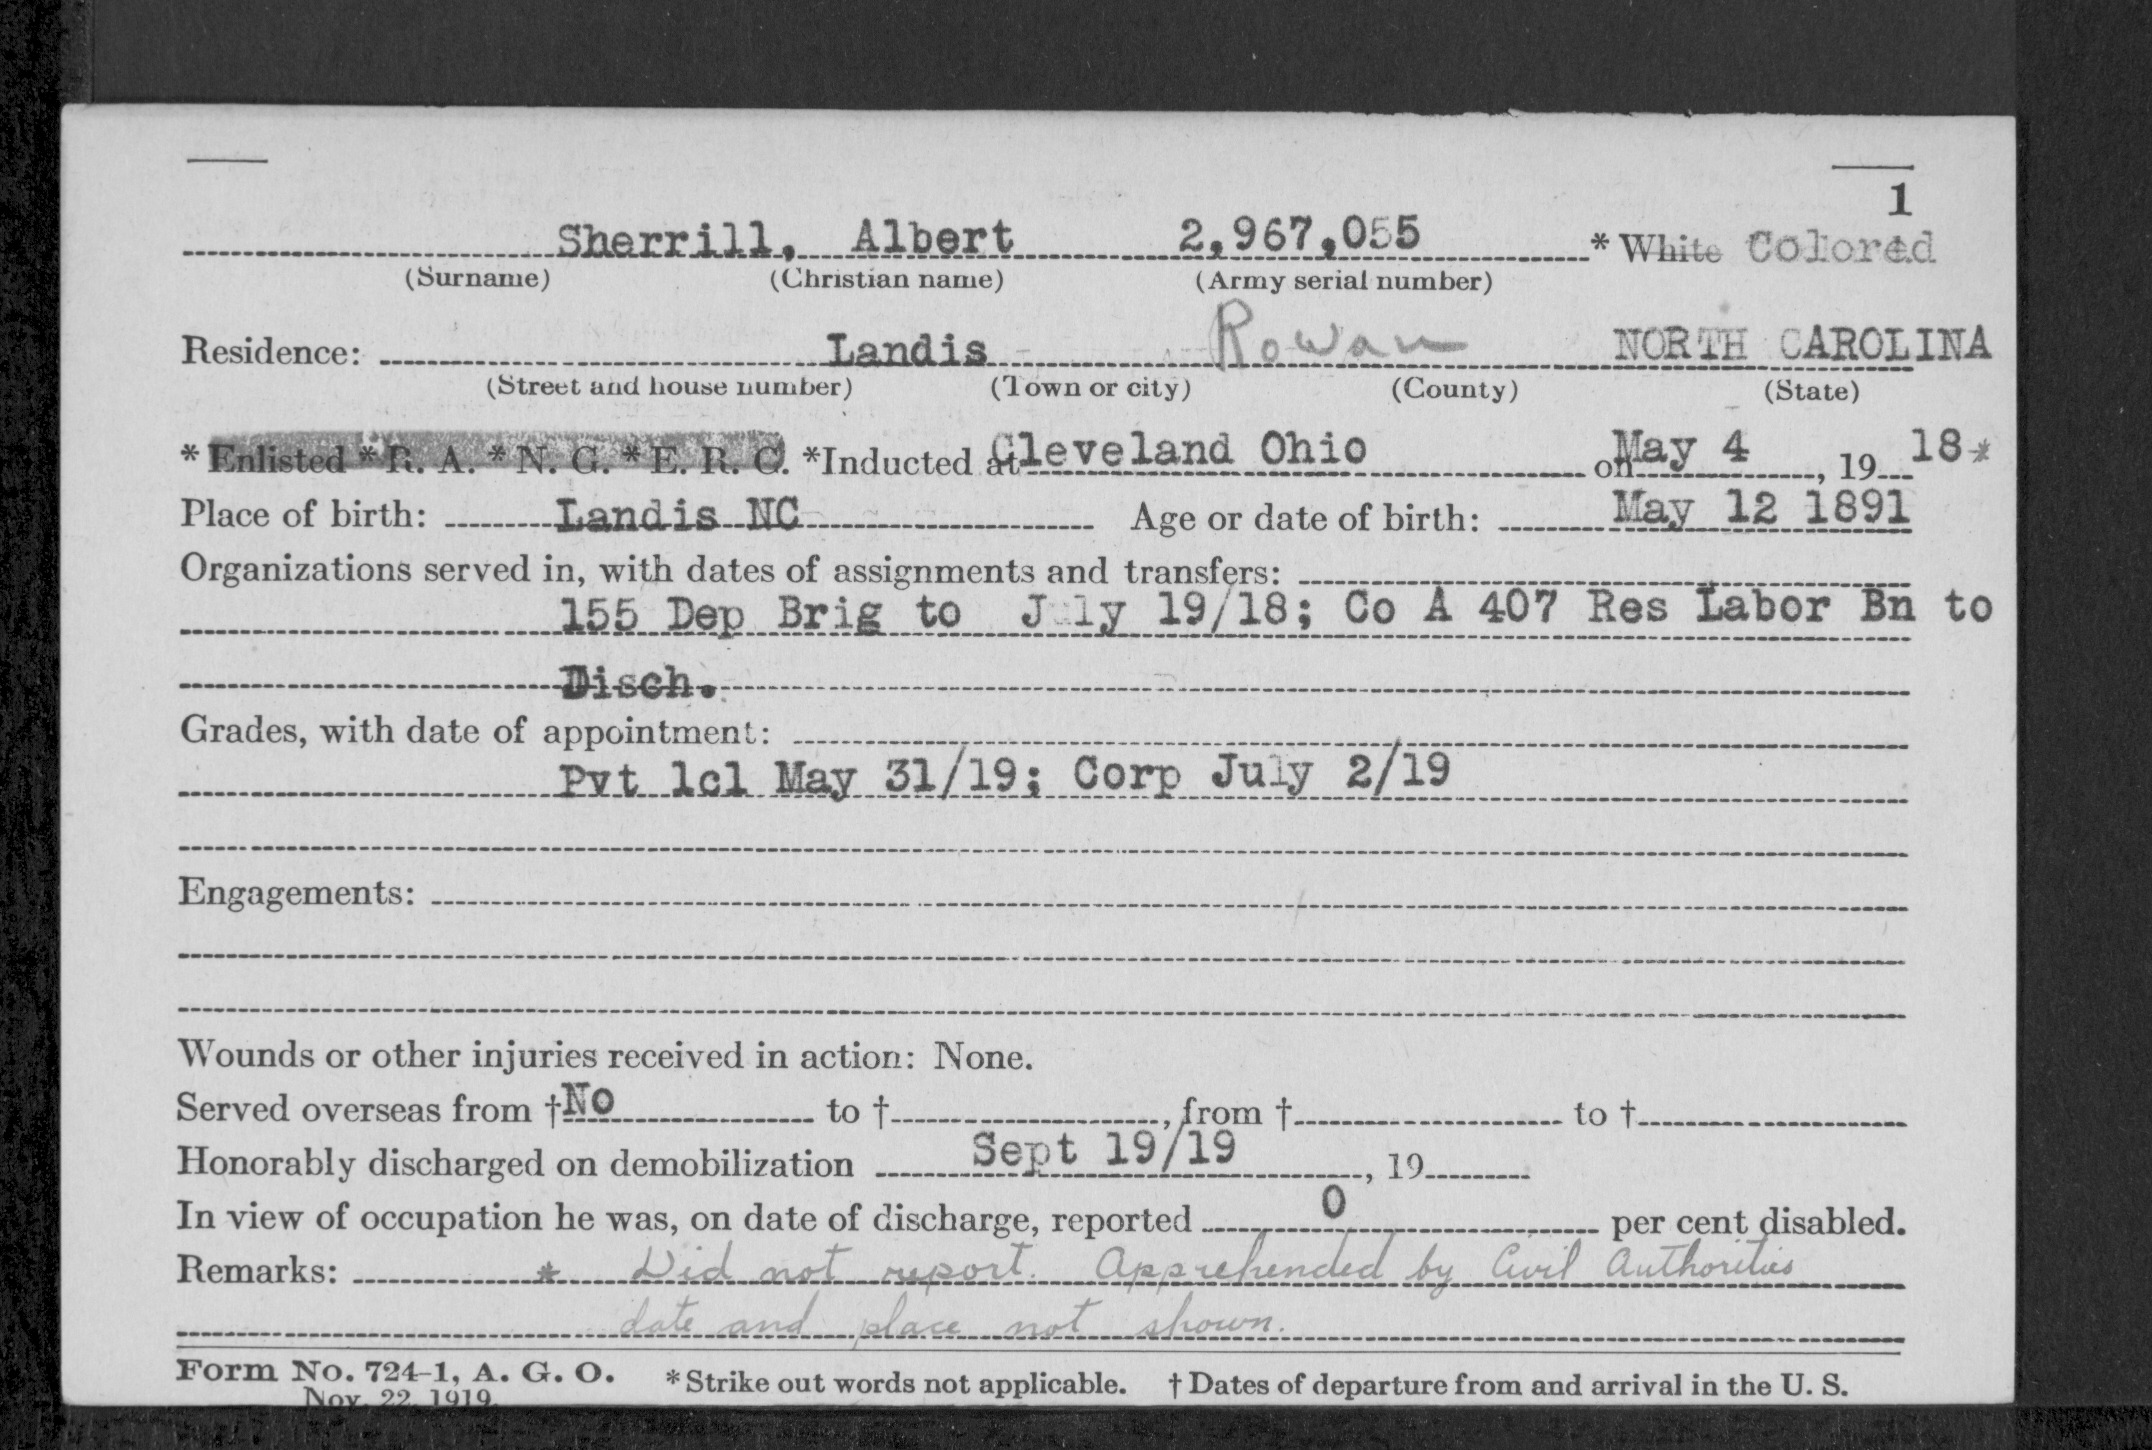 1
Sherrill, Albert 2,967,055 * White Colored
(Surname) (Christian name) (Army serial number)
Residence: Landis Rowan NORTH CAROLINA
(Street and house number) (Town or city) (County) (State)
* Enlisted * R. A. * N. G. * E. R. C. *Inducted at Cleveland Ohio on May 4, 1918*
Place of birth: Landis NC Age or date of birth: May 12 1891
Organizations served in, with dates of assignments and transfers:
155 Dep Brig to July 19/18; Co A 407 Res Labor Bn to
Disch.
Grades, with date of appointment:
Pvt 1cl May 31/19; Corp July 2/19
Engagements:
Wounds or other injuries received in action: None.
Served overseas from †No to †, from † to †
Honorably discharged on demobilization Sept 19/19, 19
In view of occupation he was, on date of discharge, reported 0 per cent disabled.
Remarks: * Did not report. Apprehended by Civil Authorities
date and place not shown.
Form No. 724-1, A. G. O. *Strike out words not applicable. † Dates of departure from and arrival in the U. S.
Nov. 22, 1919.